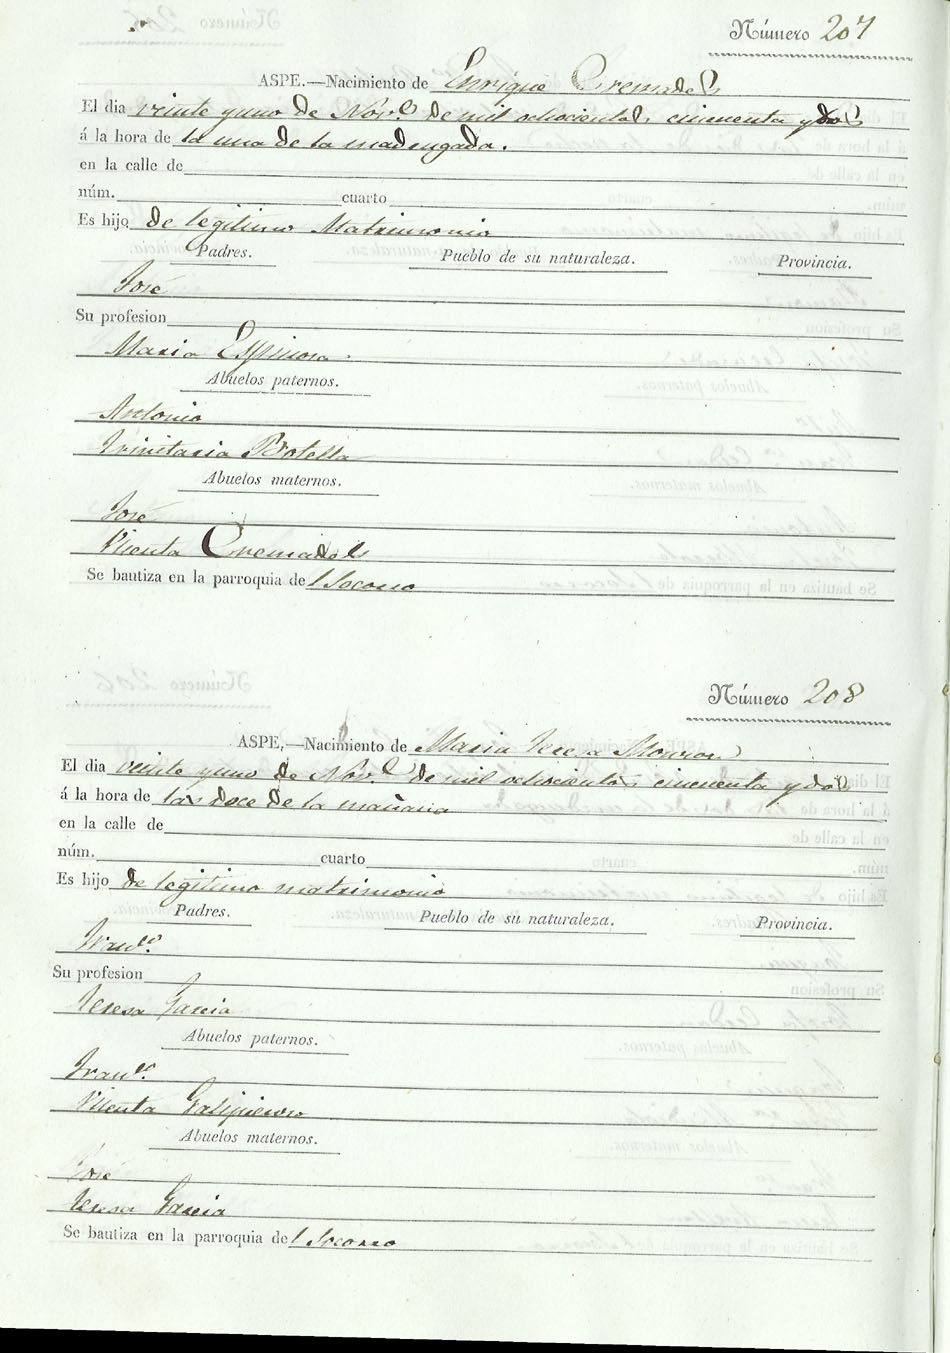 Número 207
ASPE.—Nacimiento de Enrique Cremades
El dia veinte y uno de Nov.e de mil ochocientos cincuenta y dos
á la hora de la una de la madrugada.
en la calle de
núm. cuarto
Es hijo de legitimo Matrimonio
Padres. Pueblo de su naturaleza. Provincia.
José
Su profesion
Maria Espinosa
Abuelos paternos.
Antonio
Trinitaria Botella
Abuelos maternos.
José
Vicenta Cremades
Se bautiza en la parroquia del Socorro
Número 208
ASPE.—Nacimiento de Maria Teresa
El dia veinte y uno de Nov.e de mil ochocientos cincuenta y dos
á la hora de las doce de la mañana
en la calle de
núm. cuarto
Es hijo de legitimo matrimonio
Padres. Pueblo de su naturaleza. Provincia.
Fran.co
Su profesion
Teresa Garcia
Abuelos paternos.
Fran.co
Vicenta Galipienso
Abuelos maternos.
José
Teresa Garcia
Se bautiza en la parroquia del Socorro